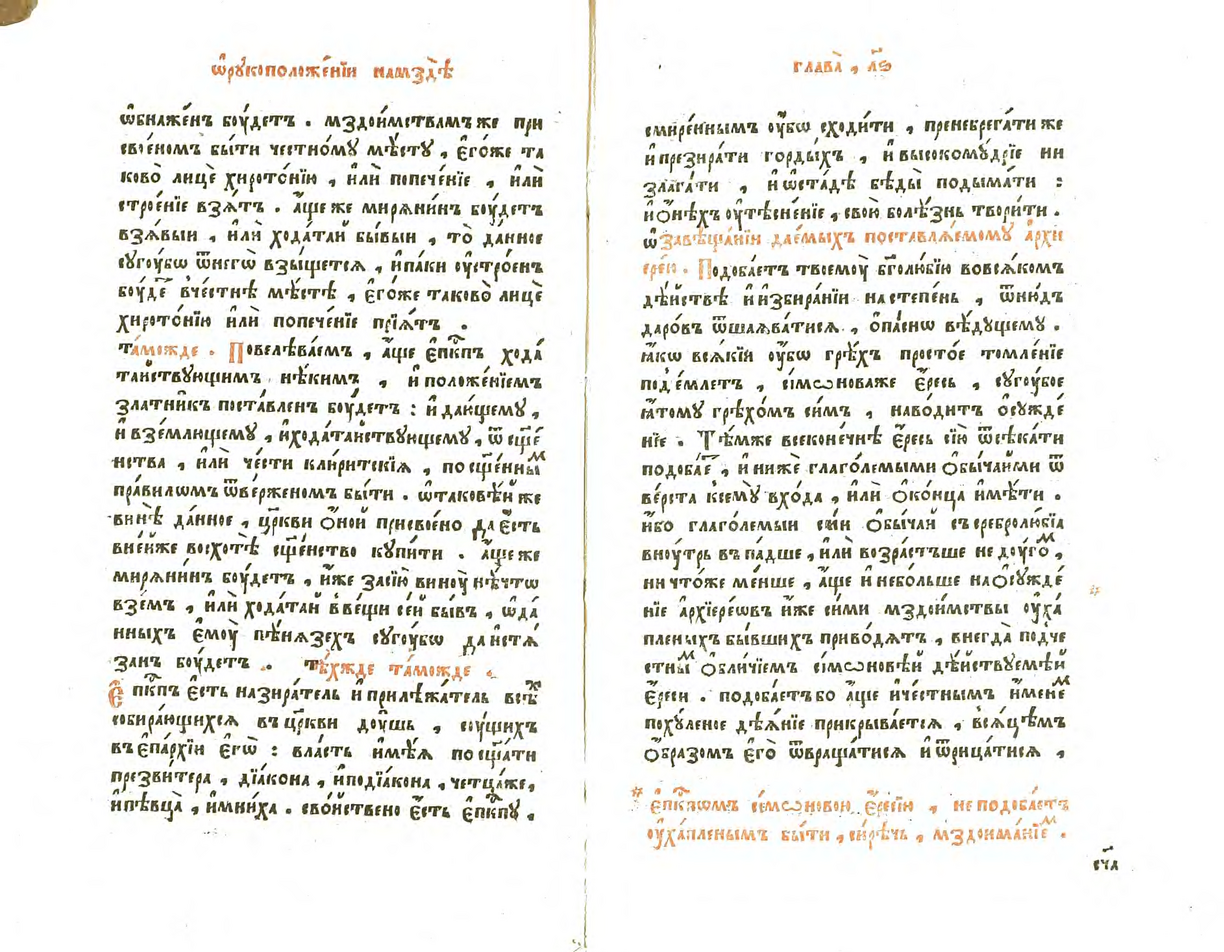 ѡ҆рꙋкоположе́нїи намздѣ̀
ѡ҆бнаже́нъ боу́детъ . мздои́мствамъже при
своеномъ бы́ти честно́мꙋ мѣ́стꙋ , є҆го́же та
ково̀ лицѐ хирото́нїю , и҆лѝ попече́нїе , и҆лѝ
строе́нїе взѧ́тъ . а҆́ще же мирѧ́нинъ боу́детъ
взѧ́выи , и҆лѝ хода́таи бы́выи , то̀ да́нное
сꙋгоу́бѡ ѿнегѡ̀ взы́щетсѧ , и҆па́ки ᲂу҆стро́енъ
боу́де вче́стнѣ мѣ́стѣ , є҆го́же таково̀ лицѐ
хирото́нїю и҆лѝ попече́нїе прїѧ́тъ .
та́можде . Повелѣва́емъ , а҆́ще є҆пкпъ хода
та́йствꙋющимъ нѣ́кимъ , и҆ положе́нїемъ
зла́тникъ поста́вленъ боу́детъ : и҆ даю́щемꙋ ,
и҆ взе́млющемꙋ , и҆хода́тайствꙋющемꙋ , ѿ сще́
нства , и҆лѝ че́сти кли́ритскїѧ , по сще́ннымъ
пра́вилѡмъ ѿве́рженомъ бы́ти . ѡ҆таковѣ́й же
винѣ̀ да́нное , цр҃кви ѻ҆́ной присвоено да є҆́сть
вне́йже восхотѣ̀ сще́нство кꙋпи́ти . а҆́ще же
мирѧ́нинъ боу́детъ , и҆́же засїю̀ виноу̀ нѣ́чтѡ
взе́мъ , и҆лѝ хода́тай в ве́щи се́й бы́въ , ѡ҆да́
нныхъ є҆моу̀ пѣ́нѧзехъ сꙋгоу́бѡ да и҆стѧ́
занъ боу́детъ . тѣ́хжде та́можде .
Є҆пкпъ є҆́сть назира́тель и҆ прилѣжа́тель всѣ́хъ
собира́ющихсѧ въ цр҃кви доу́шь , соу́щихъ
въ є҆па́рхїи є҆гѡ̀ : вла́сть и҆мѣ́ѧ по сща́ти
презви́тера , дїа́кона , и҆подїа́кона , четца́же ,
и҆ пѣвца̀ , и҆мни́ха . сво́йствено є҆́сть є҆пкпꙋ ,
глава̀ , л҃ѕ
смире́ннымъ ᲂу҆́бѡ сходи́ти , пренебрега́ти же
и҆ презира́ти го́рдыхъ , и҆ высокомꙋ́дрїе ни
злага́ти , и҆ ѡ҆ста́дѣ бѣды̀ подыма́ти :
и҆ ѻ҆́нѣхъ ᲂу҆тѣсне́нїе , свою̀ болѣ́знь твори́ти .
ѡ҆завѣща́нїи дае́мыхъ поставлѧ́емомꙋ а҆рхи
ере́ю . Подоба́етъ твоемоу̀ бг҃олю́бїю вовсѧ́комъ
дѣ́йствѣ и҆ и҆збира́нїи на сте́пень , ѿню́дъ
даро́въ ѿшаѧва́тисѧ , ѻ҆па́снѡ вѣ́дꙋщемꙋ .
ꙗ҆́кѡ всѧ́кїй ᲂу҆́бѡ грѣ́хъ просто́е томле́нїе
под̾е́млетъ , сі́мѡноваже є҆́ресь , сꙋгоу́бое
ꙗ҆́томꙋ грѣхо́мъ си́мъ , наво́дитъ ѻ҆сꙋжде́
нїе . Тѣ́мже всеконе́чнѣ є҆́ресь сїю̀ ѿсѣка́ти
подоба́е , и҆ нижѐ глаго́лемыми ѻ҆бы́чаими ѿ
ве́рста к̾семꙋ вхо́да , и҆лѝ ѻ҆конца и҆мѣ́ти .
и҆́бо глаго́лемыи си́и ѻ҆бы́чай съ сребролю́бїа
вноу́трь въпа́дше , и҆лѝ возра́стъше недоу́гомъ ,
ни что́же ме́нше , а҆́ще и҆ небо́льше на ѻ҆сꙋжде́
нїе а҆рхїере́ѡвъ и҆́же си́ми мздои́мствы ᲂу҆ха́
пленыхъ бы́вшихъ приво́дѧтъ , внегда̀ подче́
стнымъ ѻ҆бли́чїемъ сі́мѡновѣй дѣ́йствꙋемѣй
є҆́реси . подоба́етъ бо а҆́ще и҆че́стнымъ и҆́менемъ
похꙋ́леное дѣѧ́нїе прикрыва́етсѧ , всѧ́цѣмъ
ѻ҆́бразомъ є҆го̀ ѿвраща́тисѧ и҆ ѿрица́тисѧ ,
* є҆пкпѡмъ се́мѡновою є҆́ресїю , не подоба́етъ
ᲂу҆ха́пленымъ бы́ти , си́рѣчь , мздоима́нїемъ .
сч҃л